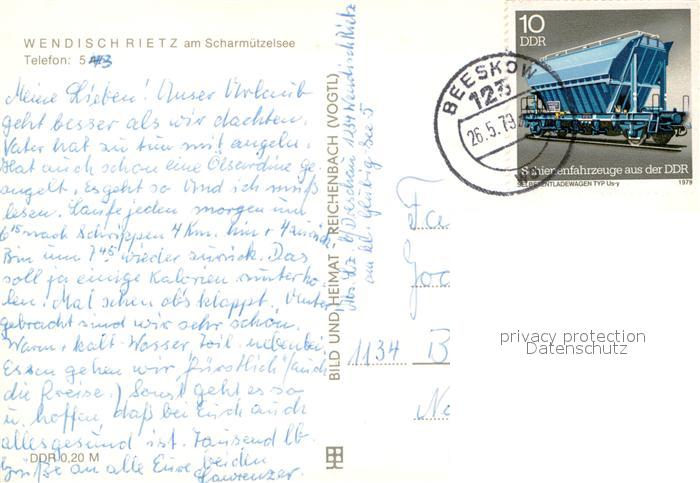 WENDISCH RIETZ am Scharmützelsee
Telefon: 5
Meine Lieben! Unser Urlaub
geht besser als wir dachten.
Vater hat zu tun mit angeln.
Hat auch schon eine Ölsardine ge-
angelt, es geht so. Und ich muß
lesen. Laufe jeden morgen um
6 15 nach Schrippen 4 Km. hin + 4 zurück
Bin um 7 45 wieder zurück. Das
soll ja einige Kalorien runterho-
len. Mal sehen ob's klappt. Unter
gebracht sind wir sehr schön.
Warm + kalt Wasser Toil. nebenbei
Essen gehen wir "fürstlich" (auch
die Preise.) Sonst geht es so
u. hoffen, daß bei Euch auch
alles gesund ist. Tausend lb.
Grüße an alle Eure beiden
DDR 0,20 M
BILD UND HEIMAT REICHENBACH (VOGTL)
1234 Wendisch Rietz
am kl. Glubig-See 5
BEESKOW
123
26.5.79
10
DDR
Schienenfahrzeuge aus der DDR
SELBSTENTLADEWAGEN TYP Us-y 1979
Fa
1134 B
privacy protection
Datenschutz